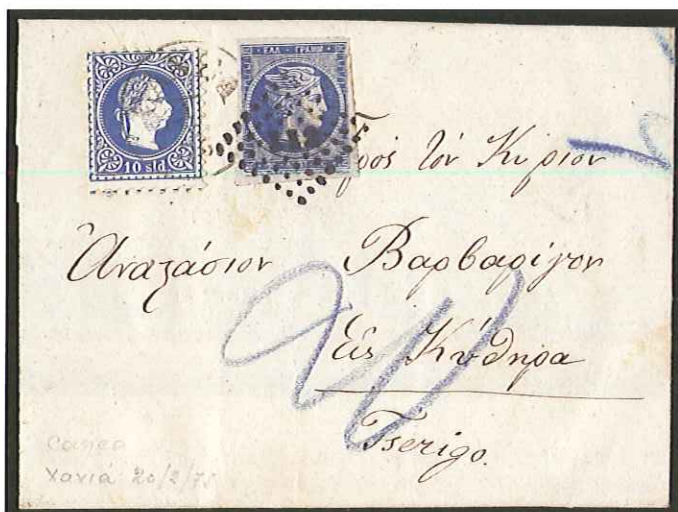 ΕΛΛ · ΓΡΑΜΜ
10 sld
Πρὸς τὸν Κύριον
Ἀναστάσιον Βαρβαρίγον
Εἰς Κύθηρα
Tserigo.
20
Canea
Χανιά 20/2/75